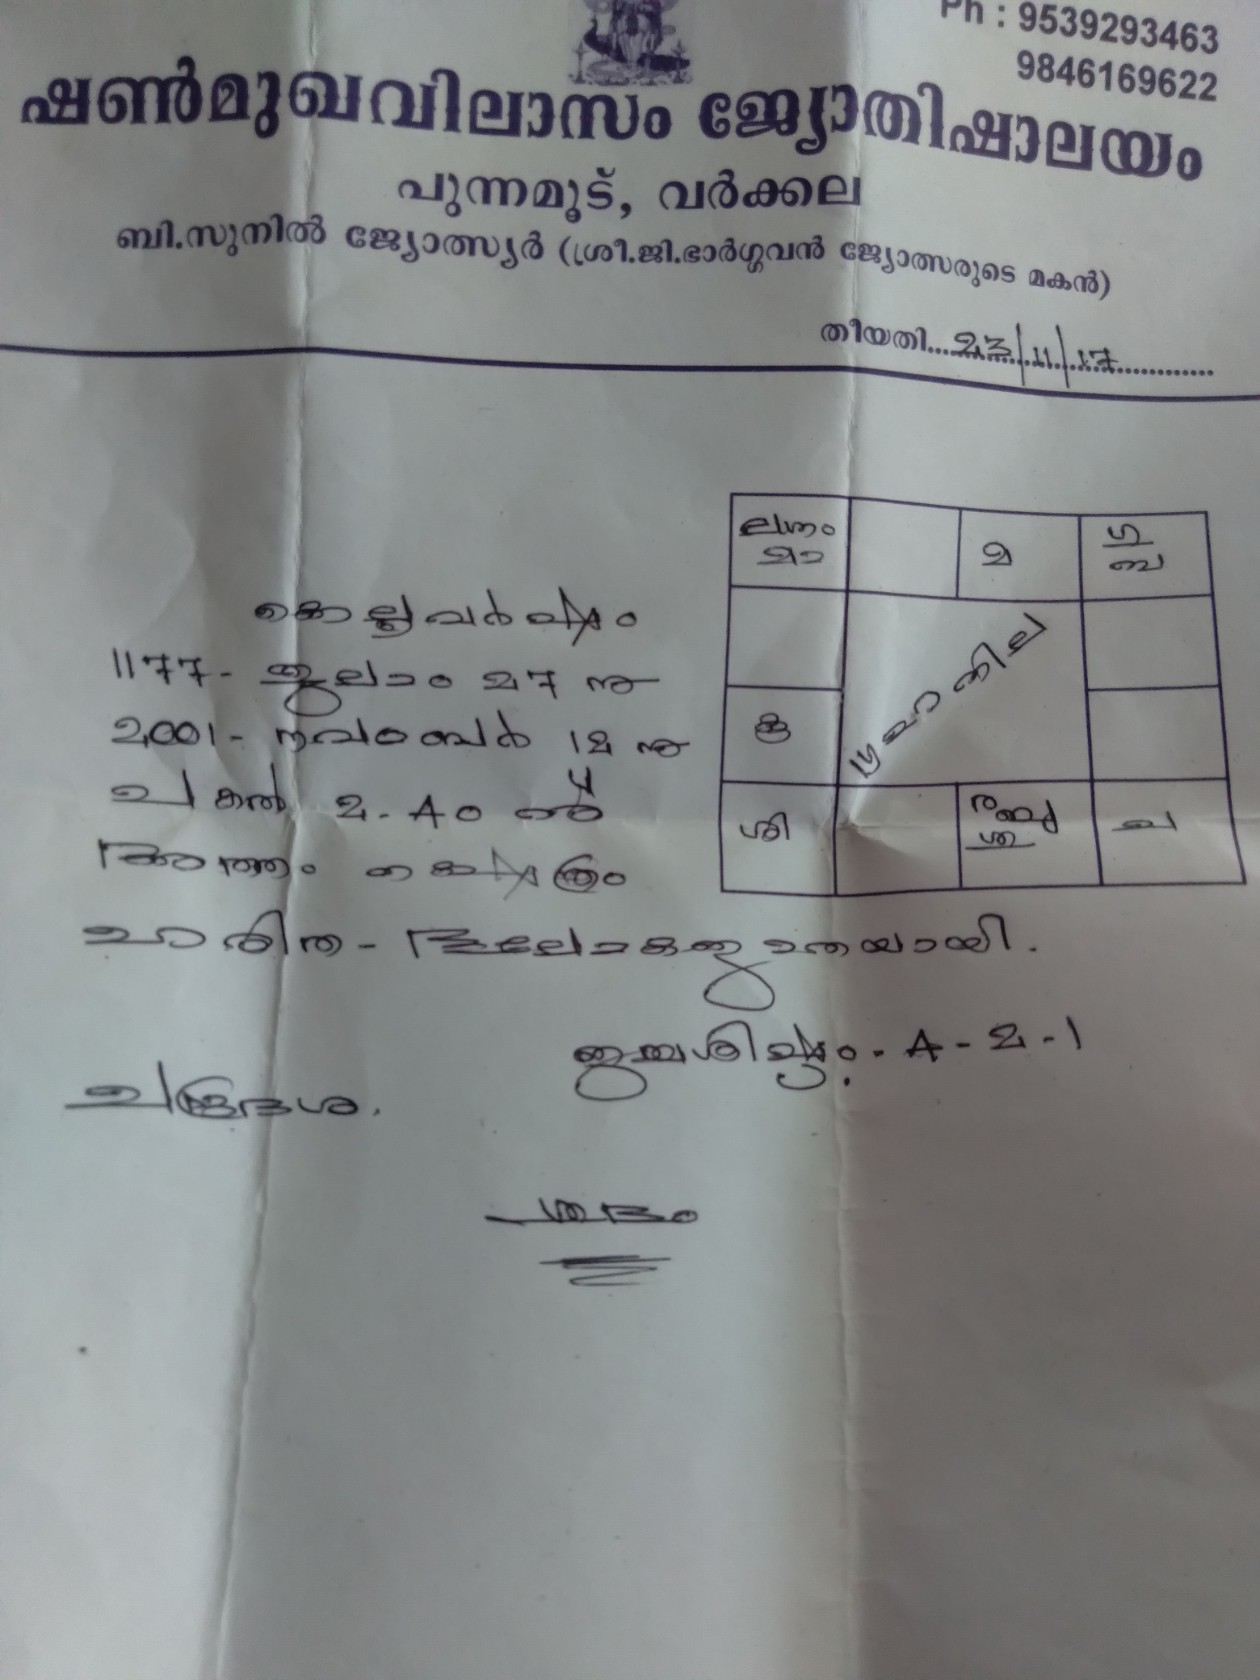 Ph : 9539293463
9846169622
ഷൺമുഖവിലാസം ജ്യോതിഷാലയം
പുന്നമൂട്, വർക്കല
ബി.സുനിൽ ജ്യോത്സ്യർ (ശ്രീ.ജി.ഭാർഗ്ഗവൻ ജ്യോത്സരുടെ മകൻ)
തീയതി 23/11/17
ലഗ്നം
മാ
മ
ഗു
ശി
കൊല്ലവർഷം
1177- തുലാം 27 ന്
2001- നവംബർ 12 ന്
പകൽ 2-40 ന്
അത്തം നക്ഷത്രം
ജന്മശിഷ്ടം - 4 - 2 - 1
ചന്ദ്രദശ.
ശുഭം